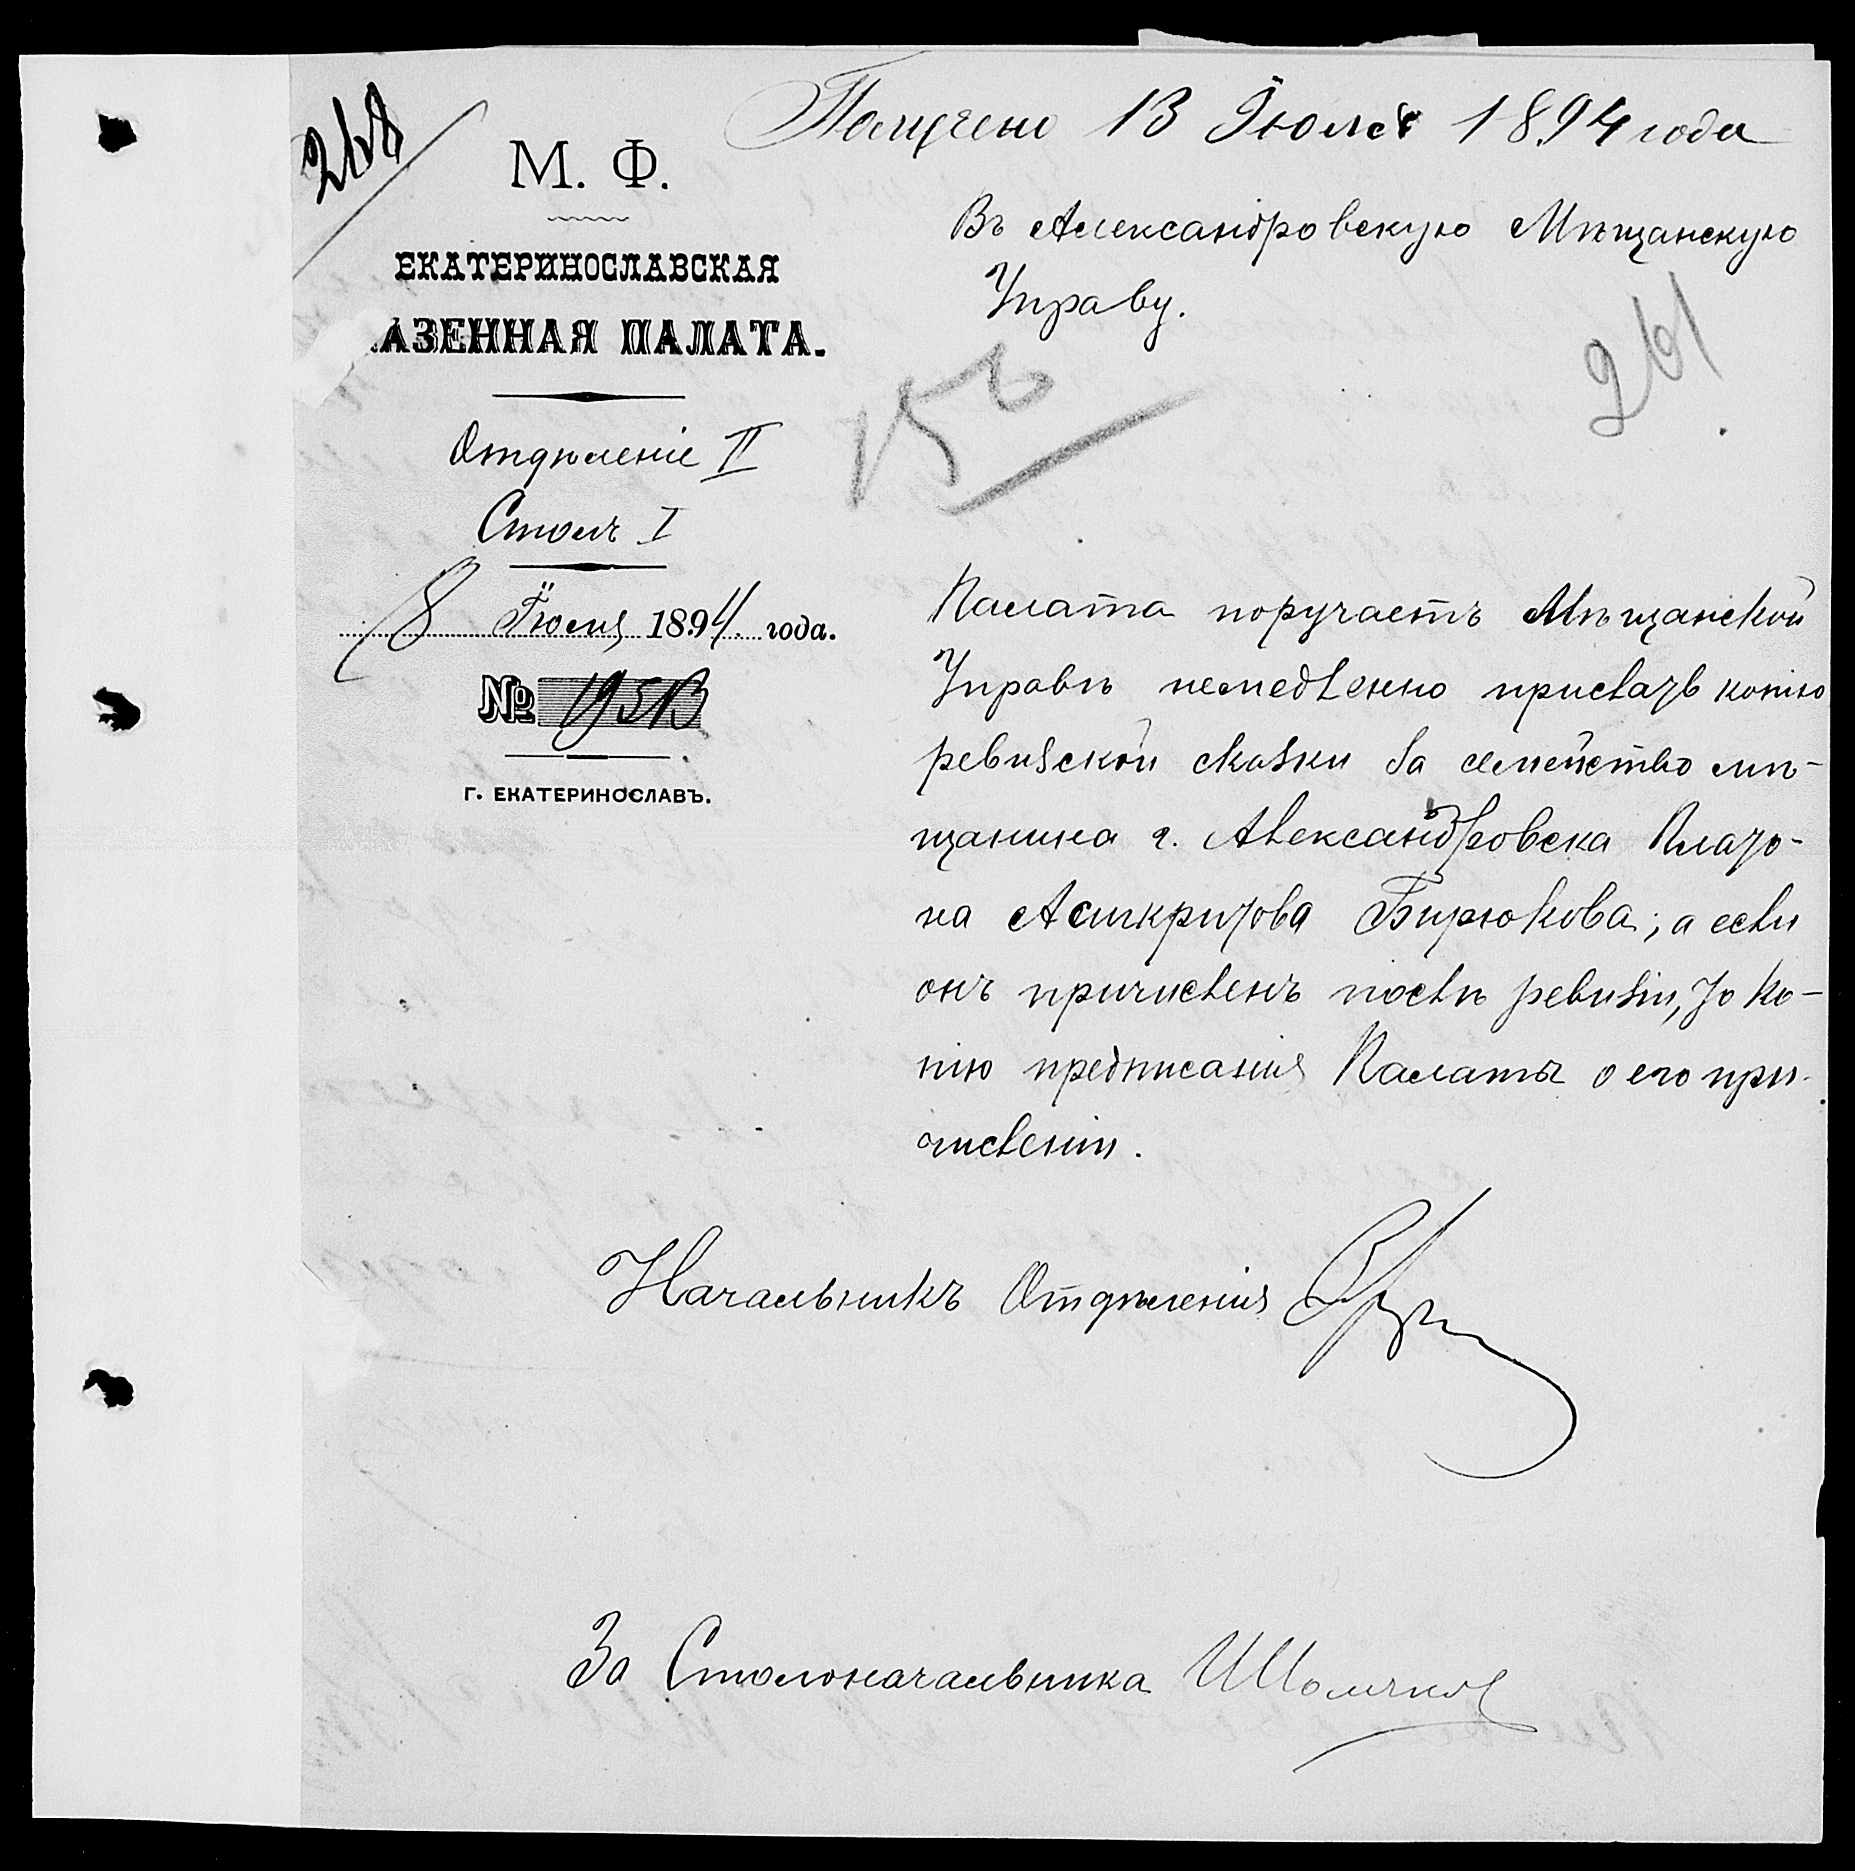 268
Получено 13 Іюля 1894 года
М. Ф.
ЕКАТЕРИНОСЛАВСКАЯ
АЗЕННАЯ ПАЛАТА.
Отдѣленіе II
Столъ I
8 Іюля 1894 года.
№ 19513
г. ЕКАТЕРИНОСЛАВЪ.
Въ Александровскую Мѣщанскую
Управу.
156
261
Палата поручаетъ Мѣщанской
Управѣ немедленно прислать копію
ревизской сказки за семейство мѣ-
щанина г. Александровска Плато-
на Асикритова Бирюкова; а если
онъ причисленъ послѣ ревизіи, то ко-
пію предписанія Палаты о его при-
численіи.
Начальникъ Отдѣленія
За Столоначальника